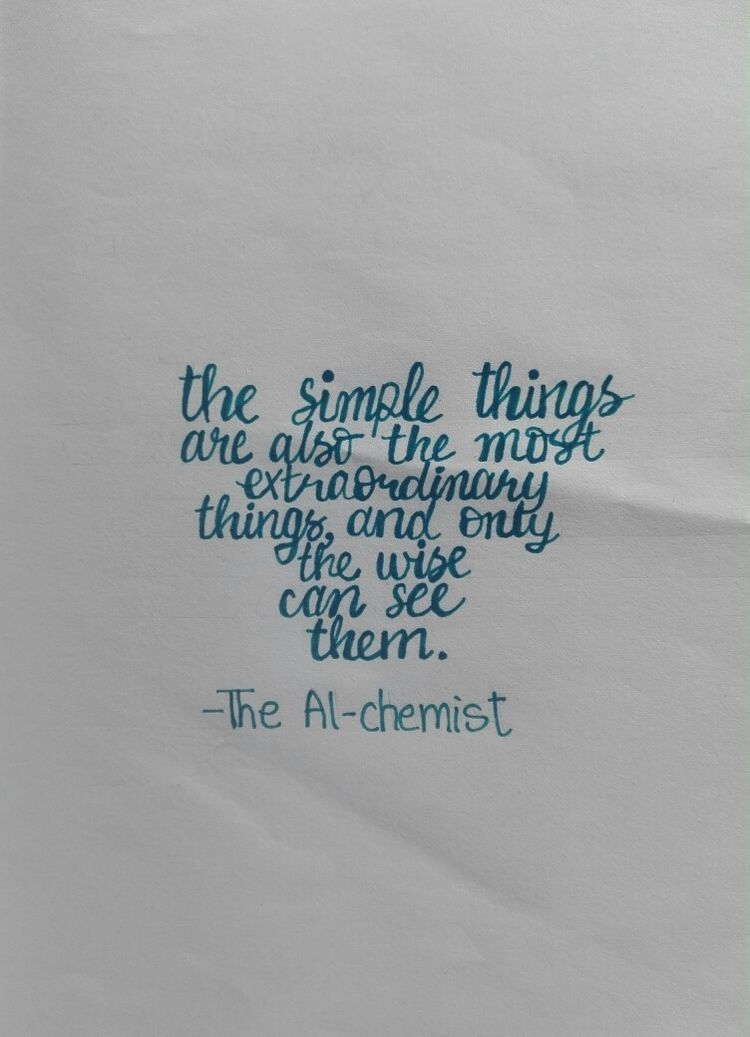 the simple things
are also the most
extraordinary
things, and only
the wise
can see
them.
-The Al-chemist